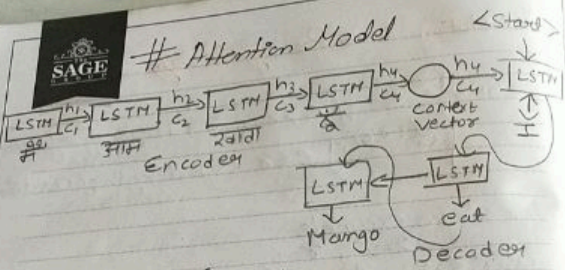 SAGE
# Attention Model
<Start>
LSTM h1 C1 LSTM h2 C2 LSTM h3 C3 LSTM h4 C4 h4 C4 LSTM
context vector
मैं आम खाता हूँ
I
Encoder
LSTM LSTM
Mango eat
Decoder